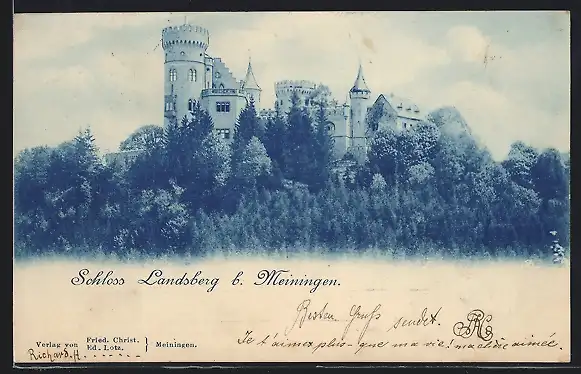 Schloss Landsberg b. Meiningen.
Besten Gruss sendet.
Je t'aime plus que ma vie! ma chère aimée.
Verlag von Fried. Christ. Ed. Lotz. Meiningen.
Richard. H.